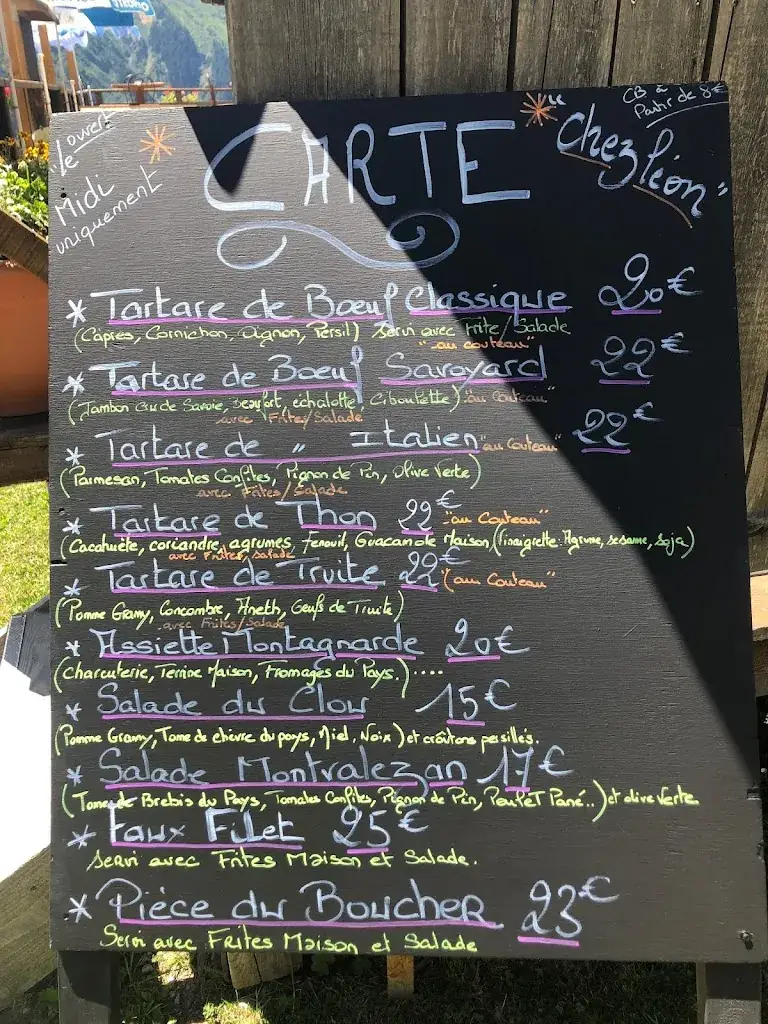 "ouvert
Le
Midi
uniquement
CARTE
"Chez léon"
CB à
Partir de 8€
* Tartare de Bœuf Classique 20€
(Câpres, Cornichon, Oignon, Persil) Servi avec Frite/Salade
"au couteau"
* Tartare de Boeuf Savoyard 22€
(Jambon Cru de Savoie, Beaufort, échalotte, Ciboulette) "au Couteau"
avec Frites/Salade
* Tartare de " Italien "au Couteau" 22€
(Parmesan, Tomates Confites, Pignon de Pin, Olive Verte)
avec Frites/Salade
* Tartare de Thon 22€ "au Couteau"
(Cacahuète, coriandre, agrumes, Fenouil, Guacamole Maison, (Vinaigrette: Agrume, sesame, soja)
avec Frites, Salade
* Tartare de Truite 22€ "(au Couteau"
(Pomme Grany, Concombre, Aneth, Oeufs de Truite)
avec Frites/Salade
* Assiette Montagnarde 20€
(Charcuterie, Terrine Maison, Fromages du Pays.)....
* Salade du Clou 15€
(Pomme Grany, Tome de chèvre du pays, Miel, Noix) et croûtons persillés.
* Salade Montvalezan 17€
(Tome de Brebis du Pays, Tomates Confites, Pignon de Pin, Poulet Pané..) et olive Verte
* Faux Filet 25€
Servi avec Frites Maison et Salade.
* Pièce du Boucher 23€
Servi avec Frites Maison et Salade